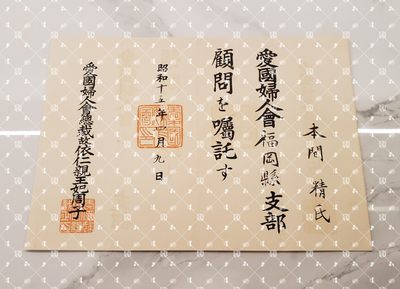 本間精氏
愛國婦人會福岡縣支部
顧問を囑託す
昭和十五年一月九日
愛國婦人會總裁故依仁親王妃周子